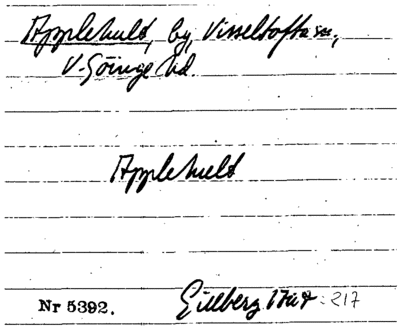 Applehult, by, Visseltofta sn,
V. Göinge hd.
Applehult
Nr 5392.
Gillberg 1767: 217